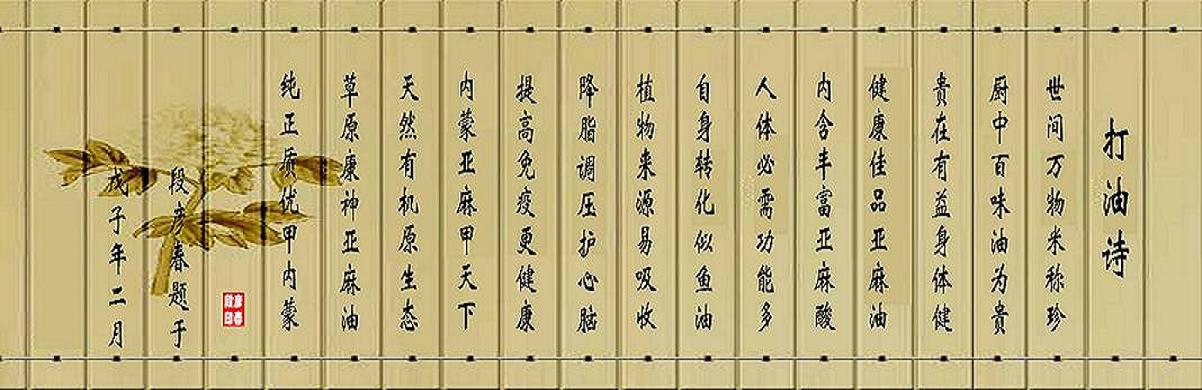 打油诗
世间万物米称珍
厨中百味油为贵
贵在有益身体健
健康佳品亚麻油
内含丰富亚麻酸
人体必需功能多
自身转化似鱼油
植物来源易吸收
降脂调压护心脑
提高免疫更健康
内蒙亚麻甲天下
天然有机原生态
草原康神亚麻油
纯正质优甲内蒙
段彦春题于
戊子年二月
段彦春印